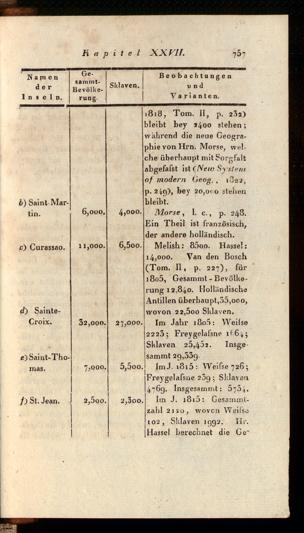 Kapitel XXVII. 757
Namen der Inseln. Gesammt-Bevölkerung. Sklaven. Beobachtungen und Varianten.
1818, Tom. II, p. 232)
bleibt bey 2400 stehen;
während die neue Geogra-
phie von Hrn. Morse, wel-
che überhaupt mit Sorgfalt
abgefaßt ist (New System
of modern Geog., 1822,
p. 249), bey 20,000 stehen
bleibt.
b) Saint-Mar-
tin. 6,000. 4,000. Morse, l. c., p. 248.
Ein Theil ist französisch,
der andere holländisch.
c) Curassao. 11,000. 6,500. Melish: 8500. Hassel:
14,000. Van den Bosch
(Tom. II, p. 227), für
1805, Gesammt-Bevölke-
rung 12,840. Holländische
Antillen überhaupt, 35,000,
wovon 22,500 Sklaven.
d) Sainte-
Croix. 32,000. 27,000. Im Jahr 1805: Weiße
2223; Freygelaßne 1664;
Sklaven 25,452. Insge-
sammt 29,339.
e) Saint-Tho-
mas. 7,000. 5,500. Im J. 1815: Weiße 726;
Freygelaßne 239; Sklaven
4769. Insgesammt: 5734.
f) St. Jean. 2,500. 2,300. Im J. 1815: Gesammt-
zahl 2120, wovon Weiße
102, Sklaven 1992. Hr.
Hassel berechnet die Ge-